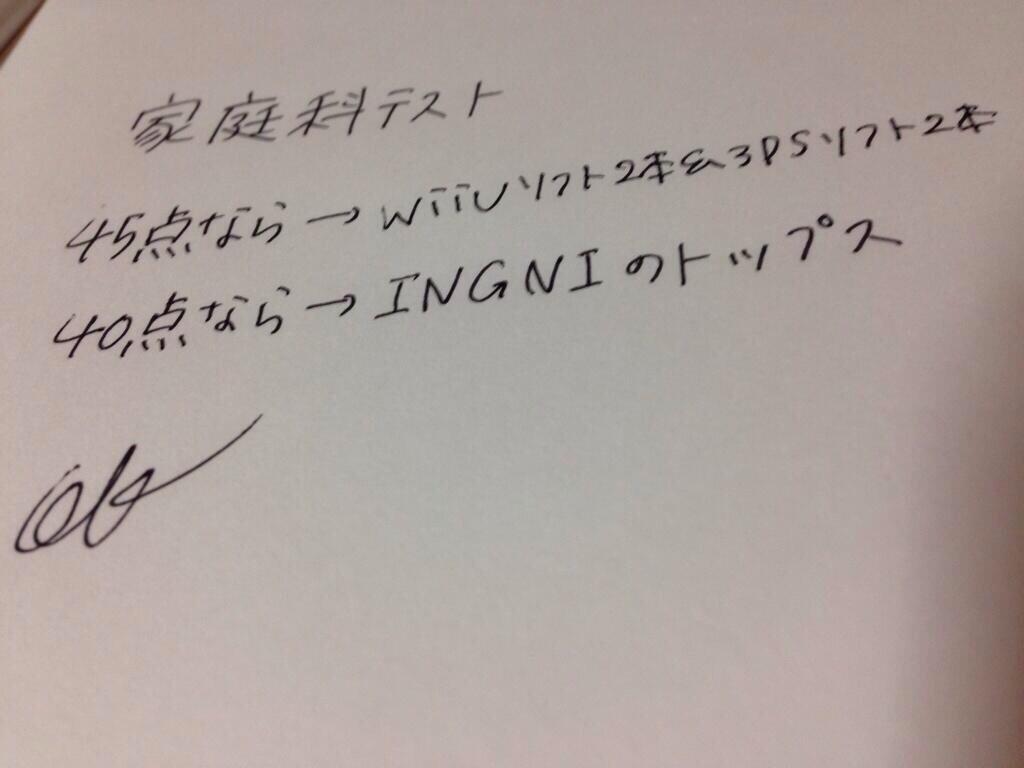 家庭科テスト
45点なら→WiiUソフト2本&3PSソフト2本
40点なら→INGNIのトップス